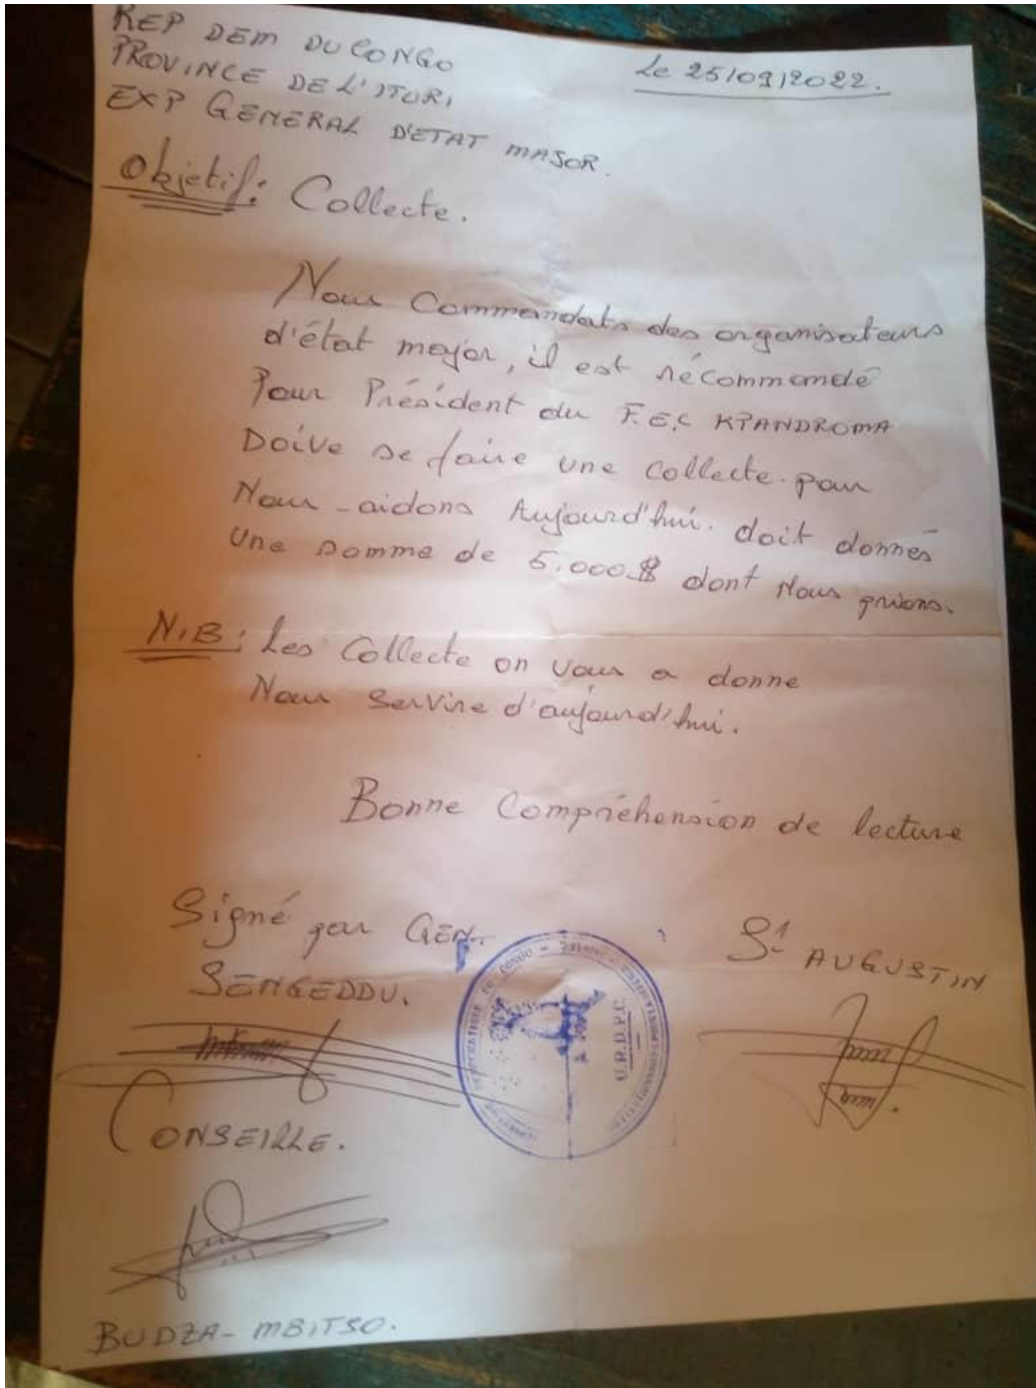 REP DEM DU CONGO
Le 25/09/2022.
PROVINCE DE L'ITURI
EXP GENERAL D'ETAT MAJOR.
Objetif: Collecte.
Nour Commandats des organisateurs
d'état major, il est récommandé
Pour Président du F.E.C KPANDROMA
Doive se faire une collecte pour
Nour-aidons Aujourd'hui. doit donnés
Une somme de 5.000 $ dont Nous prions.
N.B: Les Collecte on vous a donne
Nour Servire d'aujourd'hui.
Bonne Compréhension de lecture
Signé par GEN.
SENGEDDU.
St AUGUSTIN
U.R.D.P.C.
CONSEILLE.
BUDZA-MBITSO.